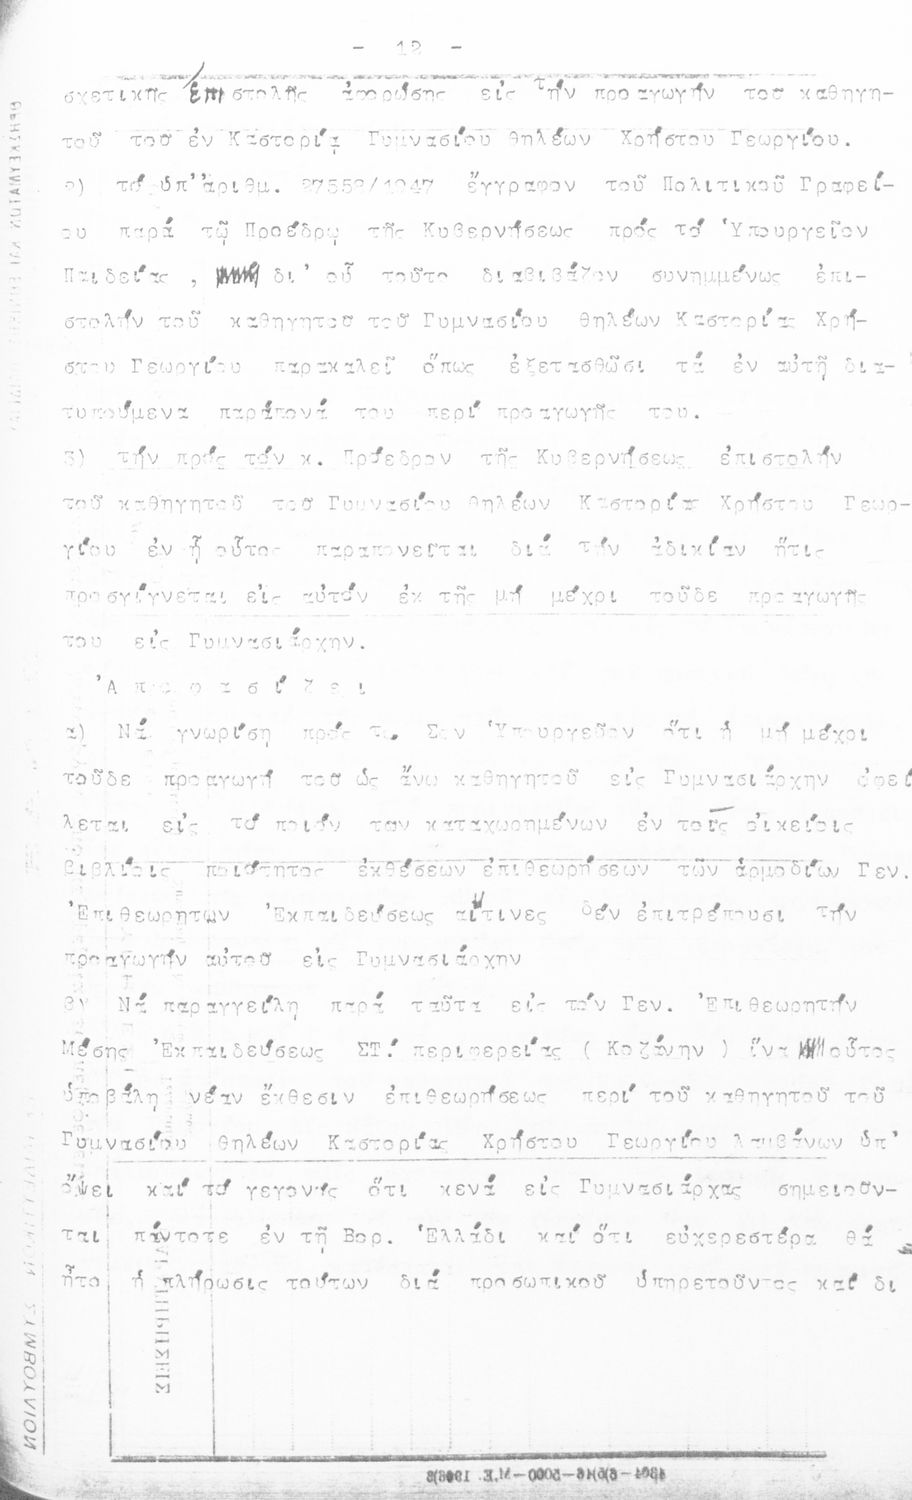 - 12 -
σχετικῆς ἐπιστολῆς ἀφορώσης εἰς τήν προαγωγήν τοῦ καθηγη-
τοῦ τοῦ ἐν Καστορίᾳ Γυμνασίου θηλέων Χρήστου Γεωργίου.
2) τό ὑπ' ἀριθμ. 27552/1947 ἔγγραφον τοῦ Πολιτικοῦ Γραφεί-
ου παρά τῷ Προέδρῳ τῆς Κυβερνήσεως πρός τό Ὑπουργεῖον
Παιδείας , δι' οὗ τοῦτο διαβιβάζον συνημμένως ἐπι-
στολήν τοῦ καθηγητοῦ τοῦ Γυμνασίου θηλέων Καστορίας Χρή-
στου Γεωργίου παρακαλεῖ ὅπως ἐξετασθῶσι τά ἐν αὐτῇ δια-
τυπούμενα παράπονά του περί προαγωγῆς του.
3) τήν πρός τόν κ. Πρόεδρον τῆς Κυβερνήσεως ἐπιστολήν
τοῦ καθηγητοῦ τοῦ Γυμνασίου θηλέων Καστορίας Χρήστου Γεωρ-
γίου ἐν ᾗ οὗτος παραπονεῖται διά τήν ἀδικίαν ἥτις
προσγίγνεται εἰς αὐτόν ἐκ τῆς μή μέχρι τοῦδε προαγωγῆς
του εἰς Γυμνασιάρχην.
Ἀ π ο φ α σ ί ζ ε ι
α) Νά γνωρίσῃ πρός το Σον Ὑπουργεῖον ὅτι ἡ μή μέχρι
τοῦδε προαγωγή τοῦ ὡς ἄνω καθηγητοῦ εἰς Γυμνασιάρχην ὀφεί
λεται εἰς τό ποιόν των καταχωρημένων ἐν τοῖς οἰκείοις
βιβλίοις ποιότητος ἐκθέσεων ἐπιθεωρήσεων τῶν ἁρμοδίων Γεν.
Ἐπιθεωρητῶν Ἐκπαιδεύσεως αἵτινες δέν ἐπιτρέπουσι τήν
προαγωγήν αὐτοῦ εἰς Γυμνασιάρχην
β) Νά παραγγείλῃ παρά ταῦτα εἰς τόν Γεν. Ἐπιθεωρητήν
Μέσης Ἐκπαιδεύσεως ΣΤ.' περιφερείας ( Κοζάνην ) ἵνα οὗτος
ὑποβάλῃ νέαν ἔκθεσιν ἐπιθεωρήσεως περί τοῦ καθηγητοῦ τοῦ
Γυμνασίου θηλέων Καστορίας Χρήστου Γεωργίου λαμβάνων ὑπ'
ὄψει καί τό γεγονός ὅτι κενά εἰς Γυμνασιάρχας σημειοῦν-
ται πάντοτε ἐν τῇ Βορ. Ἑλλάδι καί ὅτι εὐχερεστέρα θά
ἦτο ἡ πλήρωσις τούτων διά προσωπικοῦ ὑπηρετοῦντος καί δι
ΣΥΜΒΟΥΛΙΟΝ